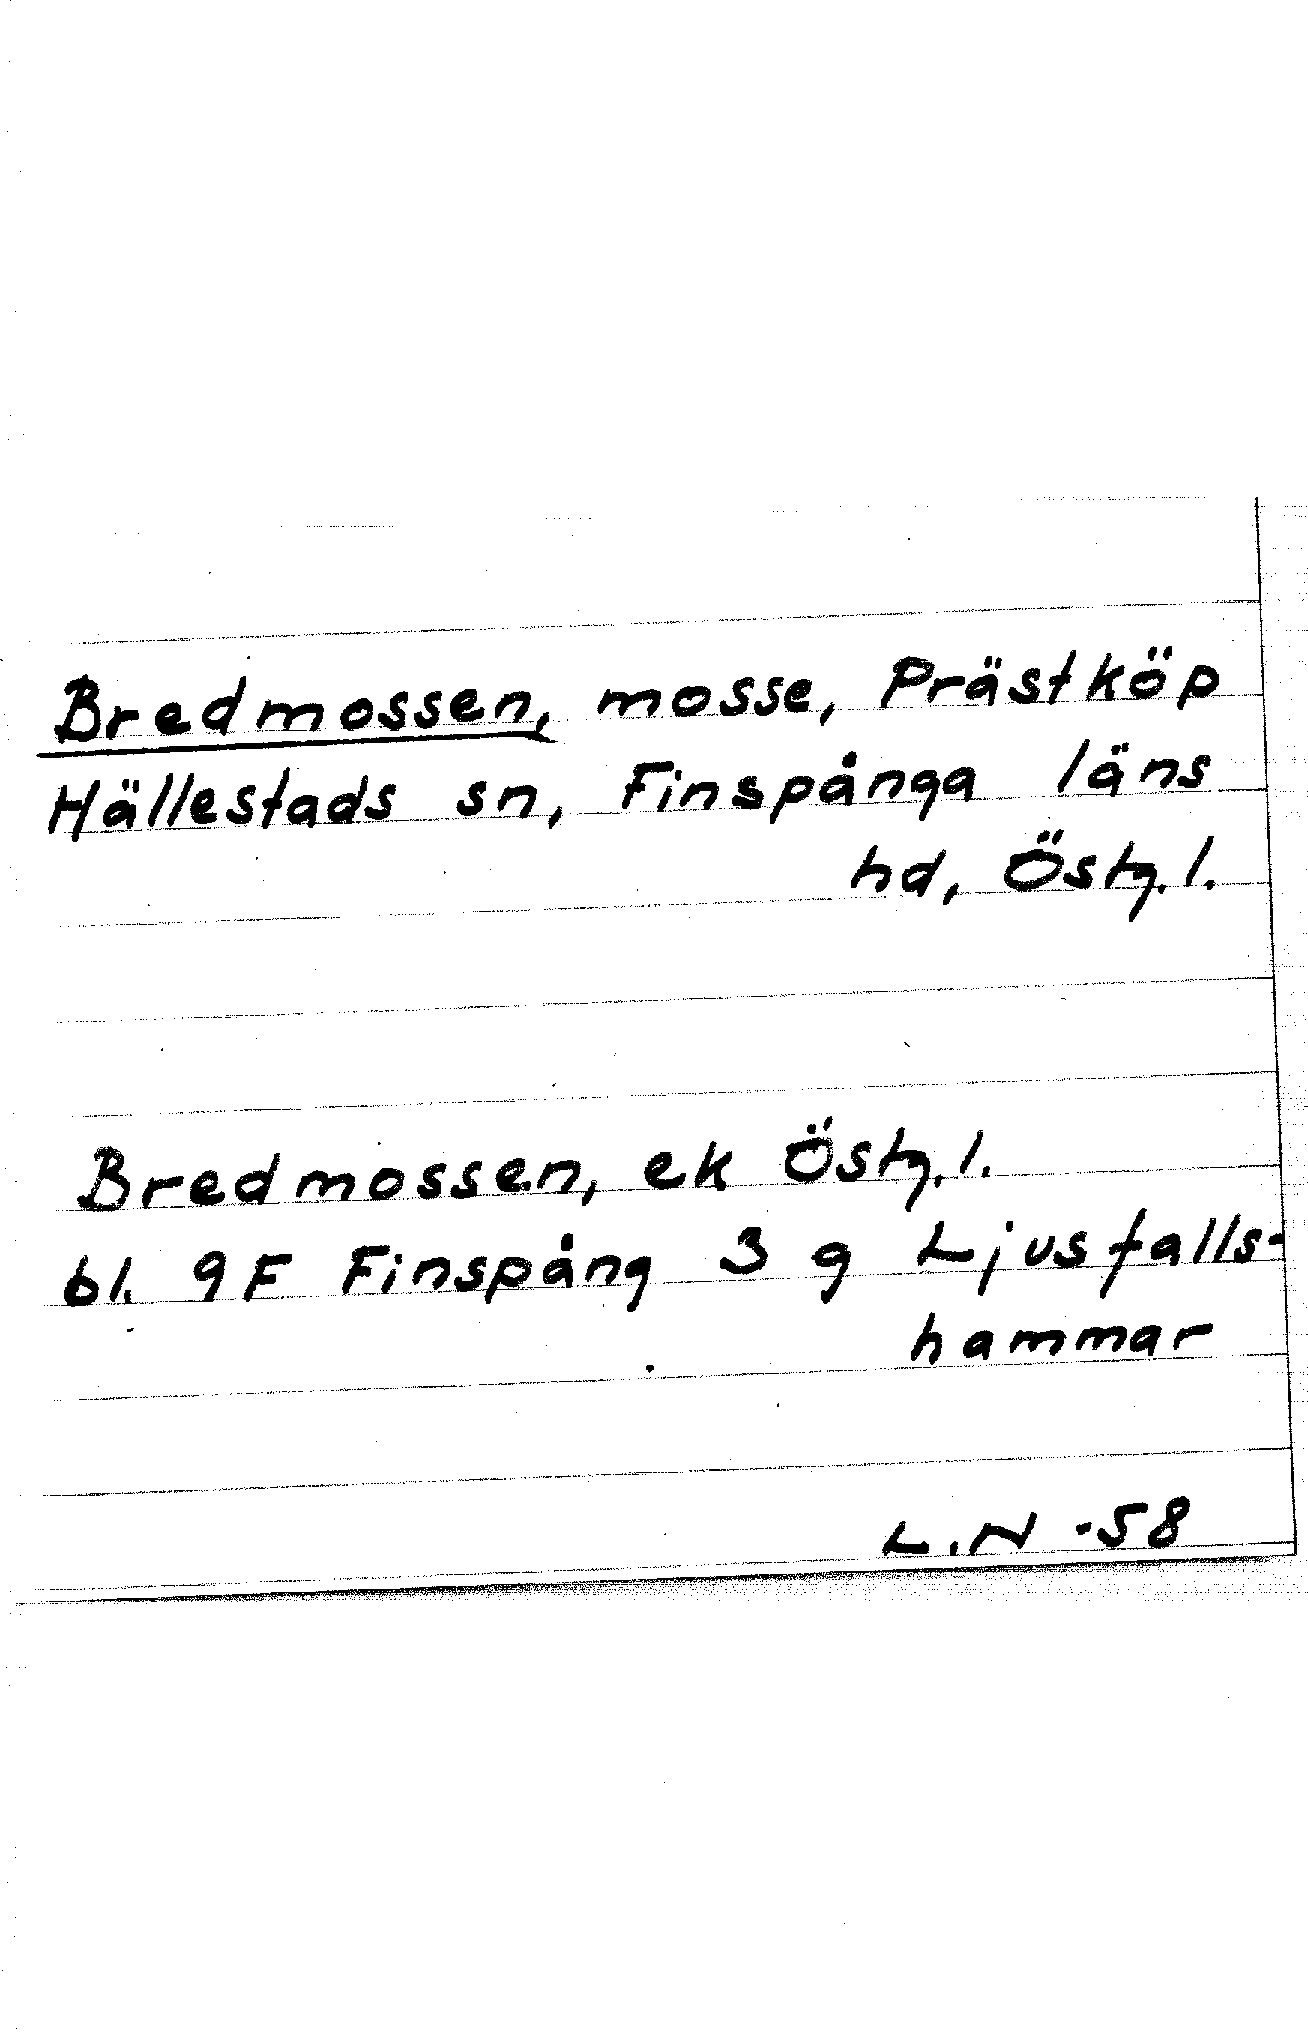 Bredmossen, mosse, Prästköp
Hällestads sn, Finspånga läns
hd, Östg.l.
Bredmossen, ek Östg.l.
bl. 9F Finspång 3 g Ljusfalls-
hammar
L.N -58